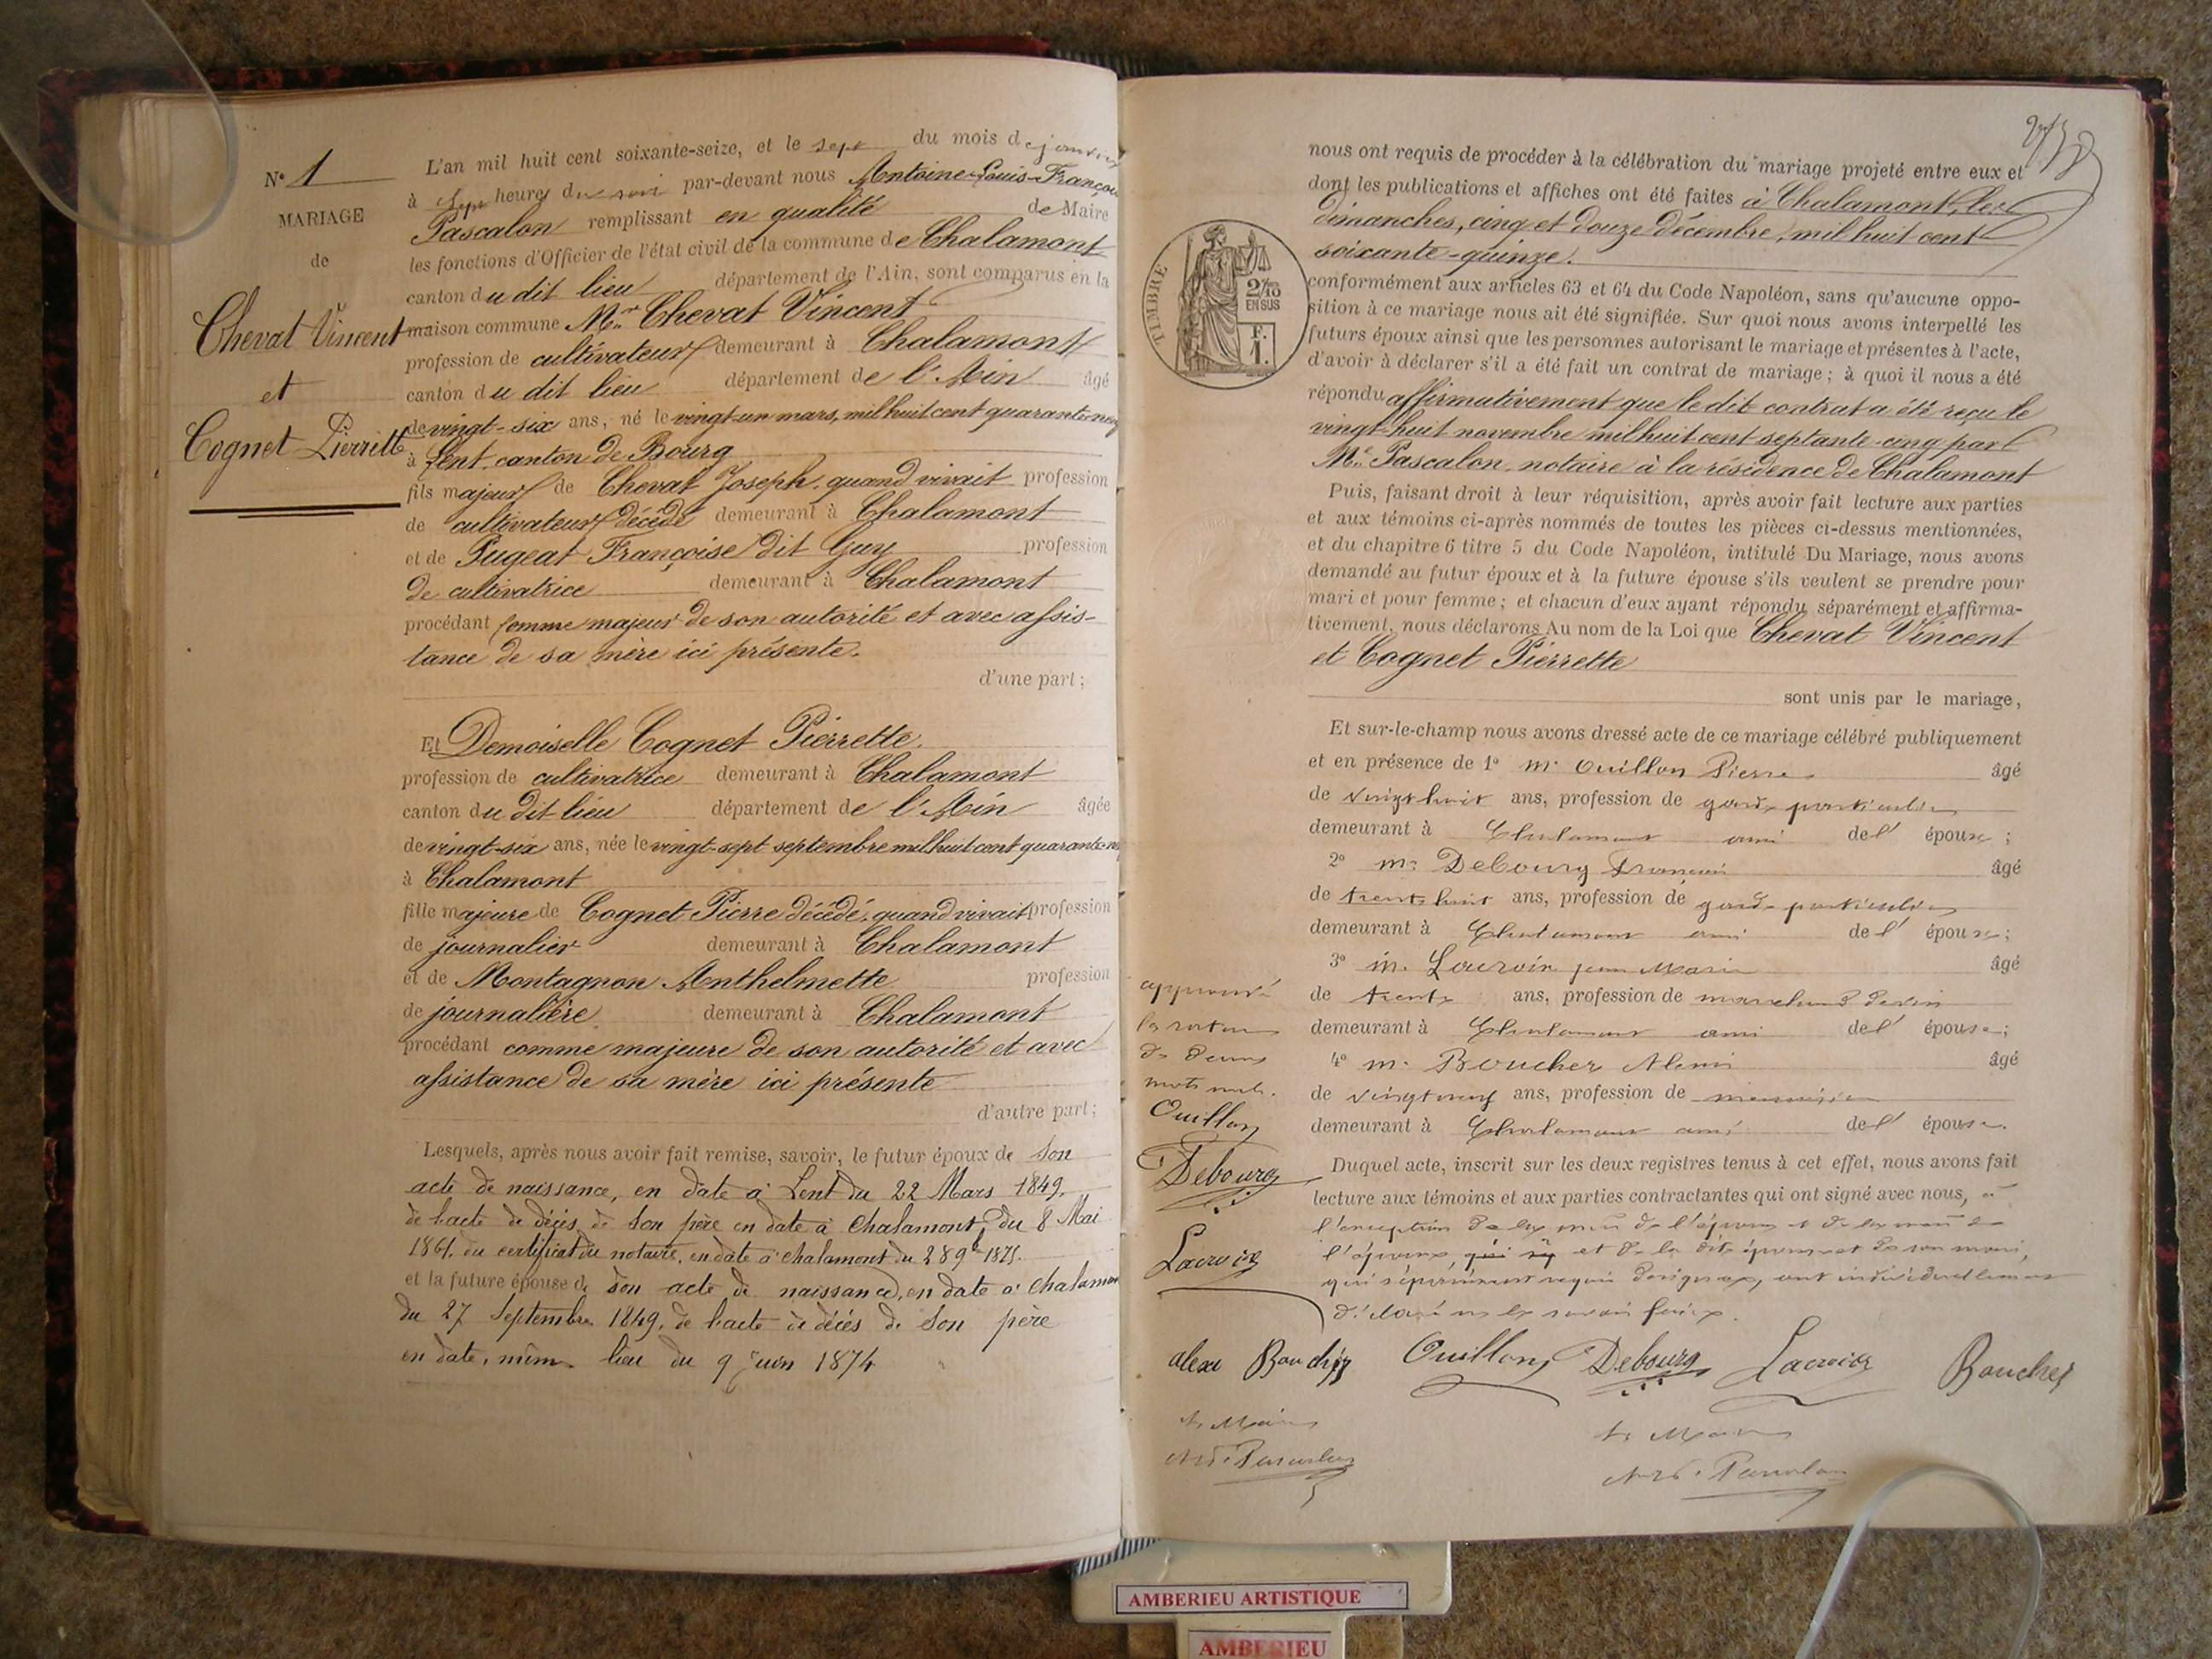 N° 1
MARIAGE
de
Chevat Vincent
et
Cognet Pierrette
L'an mil huit cent soixante-seize, et le sept du mois de janvier
à sept heures du soir par-devant nous Antoine-Louis-François
Pascalon remplissant en qualité de Maire
les fonctions d'Officier de l'état civil de la commune de Chalamont
canton du dit lieu département de l'Ain, sont comparus en la
maison commune Mr Chevat Vincent
profession de cultivateur demeurant à Chalamont
canton du dit lieu département de l'Ain âgé
de vingt-six ans, né le vingt-un mars, mil huit cent quarante-neuf
à Lent, canton de Bourg
fils majeur de Chevat Joseph, quand vivait profession
de cultivateur décédé demeurant à Chalamont
et de Pugeat Françoise dit Guy profession
de cultivatrice demeurant à Chalamont
procédant comme majeur de son autorité et avec assis-
tance de sa mère ici présente.
d'une part;
Et Demoiselle Cognet Pierrette.
profession de cultivatrice demeurant à Chalamont
canton du dit lieu département de l'Ain âgée
de vingt-six ans, née le vingt-sept septembre mil huit cent quarante-n
à Chalamont
fille majeure de Cognet Pierre décédé, quand vivait profession
de journalier demeurant à Chalamont
et de Montagnon Anthelmette profession
de journalière demeurant à Chalamont
procédant comme majeure de son autorité et avec
assistance de sa mère ici présente
d'autre part;
Lesquels, après nous avoir fait remise, savoir, le futur époux de son
acte de naissance, en date à Lent du 22 Mars 1849,
de l'acte de décès de son père en date à Chalamont, du 8 Mai
1861, du certificat du notaire, en date à Chalamont du 28 9b 1875.
et la future épouse de son acte de naissance, en date à Chalamon
du 27 Septembre 1849, de l'acte de décès de son père
en date, même lieu du 9 juin 1874
nous ont requis de procéder à la célébration du mariage projeté entre eux et
dont les publications et affiches ont été faites à Chalamont, les
dimanches, cinq et douze décembre, mil huit cent
soixante-quinze.
TIMBRE
2/10
EN SUS
F.
1.
conformément aux articles 63 et 64 du Code Napoléon, sans qu'aucune oppo-
sition à ce mariage nous ait été signifiée. Sur quoi nous avons interpellé les
futurs époux ainsi que les personnes autorisant le mariage et présentes à l'acte,
d'avoir à déclarer s'il a été fait un contrat de mariage; à quoi il nous a été
répondu affirmativement que le dit contrat a été reçu le
vingt-huit novembre mil huit cent septante-cinq par
Me Pascalon, notaire à la résidence de Chalamont
Puis, faisant droit à leur réquisition, après avoir fait lecture aux parties
et aux témoins ci-après nommés de toutes les pièces ci-dessus mentionnées,
et du chapitre 6 titre 5 du Code Napoléon, intitulé Du Mariage, nous avons
demandé au futur époux et à la future épouse s'ils veulent se prendre pour
mari et pour femme; et chacun d'eux ayant répondu séparément et affirma-
tivement, nous déclarons Au nom de la Loi que Chevat Vincent
et Cognet Pierrette
sont unis par le mariage,
Et sur-le-champ nous avons dressé acte de ce mariage célébré publiquement
et en présence de 1° Mr Ouillon Pierre âgé
de vingt huit ans, profession de garde particulier
demeurant à Chalamont ami de l' épouse;
2° Mr Debourg François âgé
de trente huit ans, profession de garde particulier
demeurant à Chalamont ami de l' épouse;
3° M. Lacroix jean Marie âgé
de trente ans, profession de marchand de vin
demeurant à Chalamont ami de l' épouse;
4° M. Boucher Alexis âgé
de vingt neuf ans, profession de menuisier
demeurant à Chalamont ami de l' épouse.
Duquel acte, inscrit sur les deux registres tenus à cet effet, nous avons fait
lecture aux témoins et aux parties contractantes qui ont signé avec nous, à
l'exception de la mère de l'époux et de la mère de
l'épouse et de la dite épouse et de son mari,
qui séparément requis de signer, ont individuellement
déclaré ne le savoir faire.
approuvé
la rature
de deux
mots nuls.
Ouillon
Debourg
Lacroix
alexi Boucher Ouillon Debourg Lacroix Boucher
le Maire
Pascalon
le Maire
Pascalon
AMBERIEU ARTISTIQUE
AMBERIEU